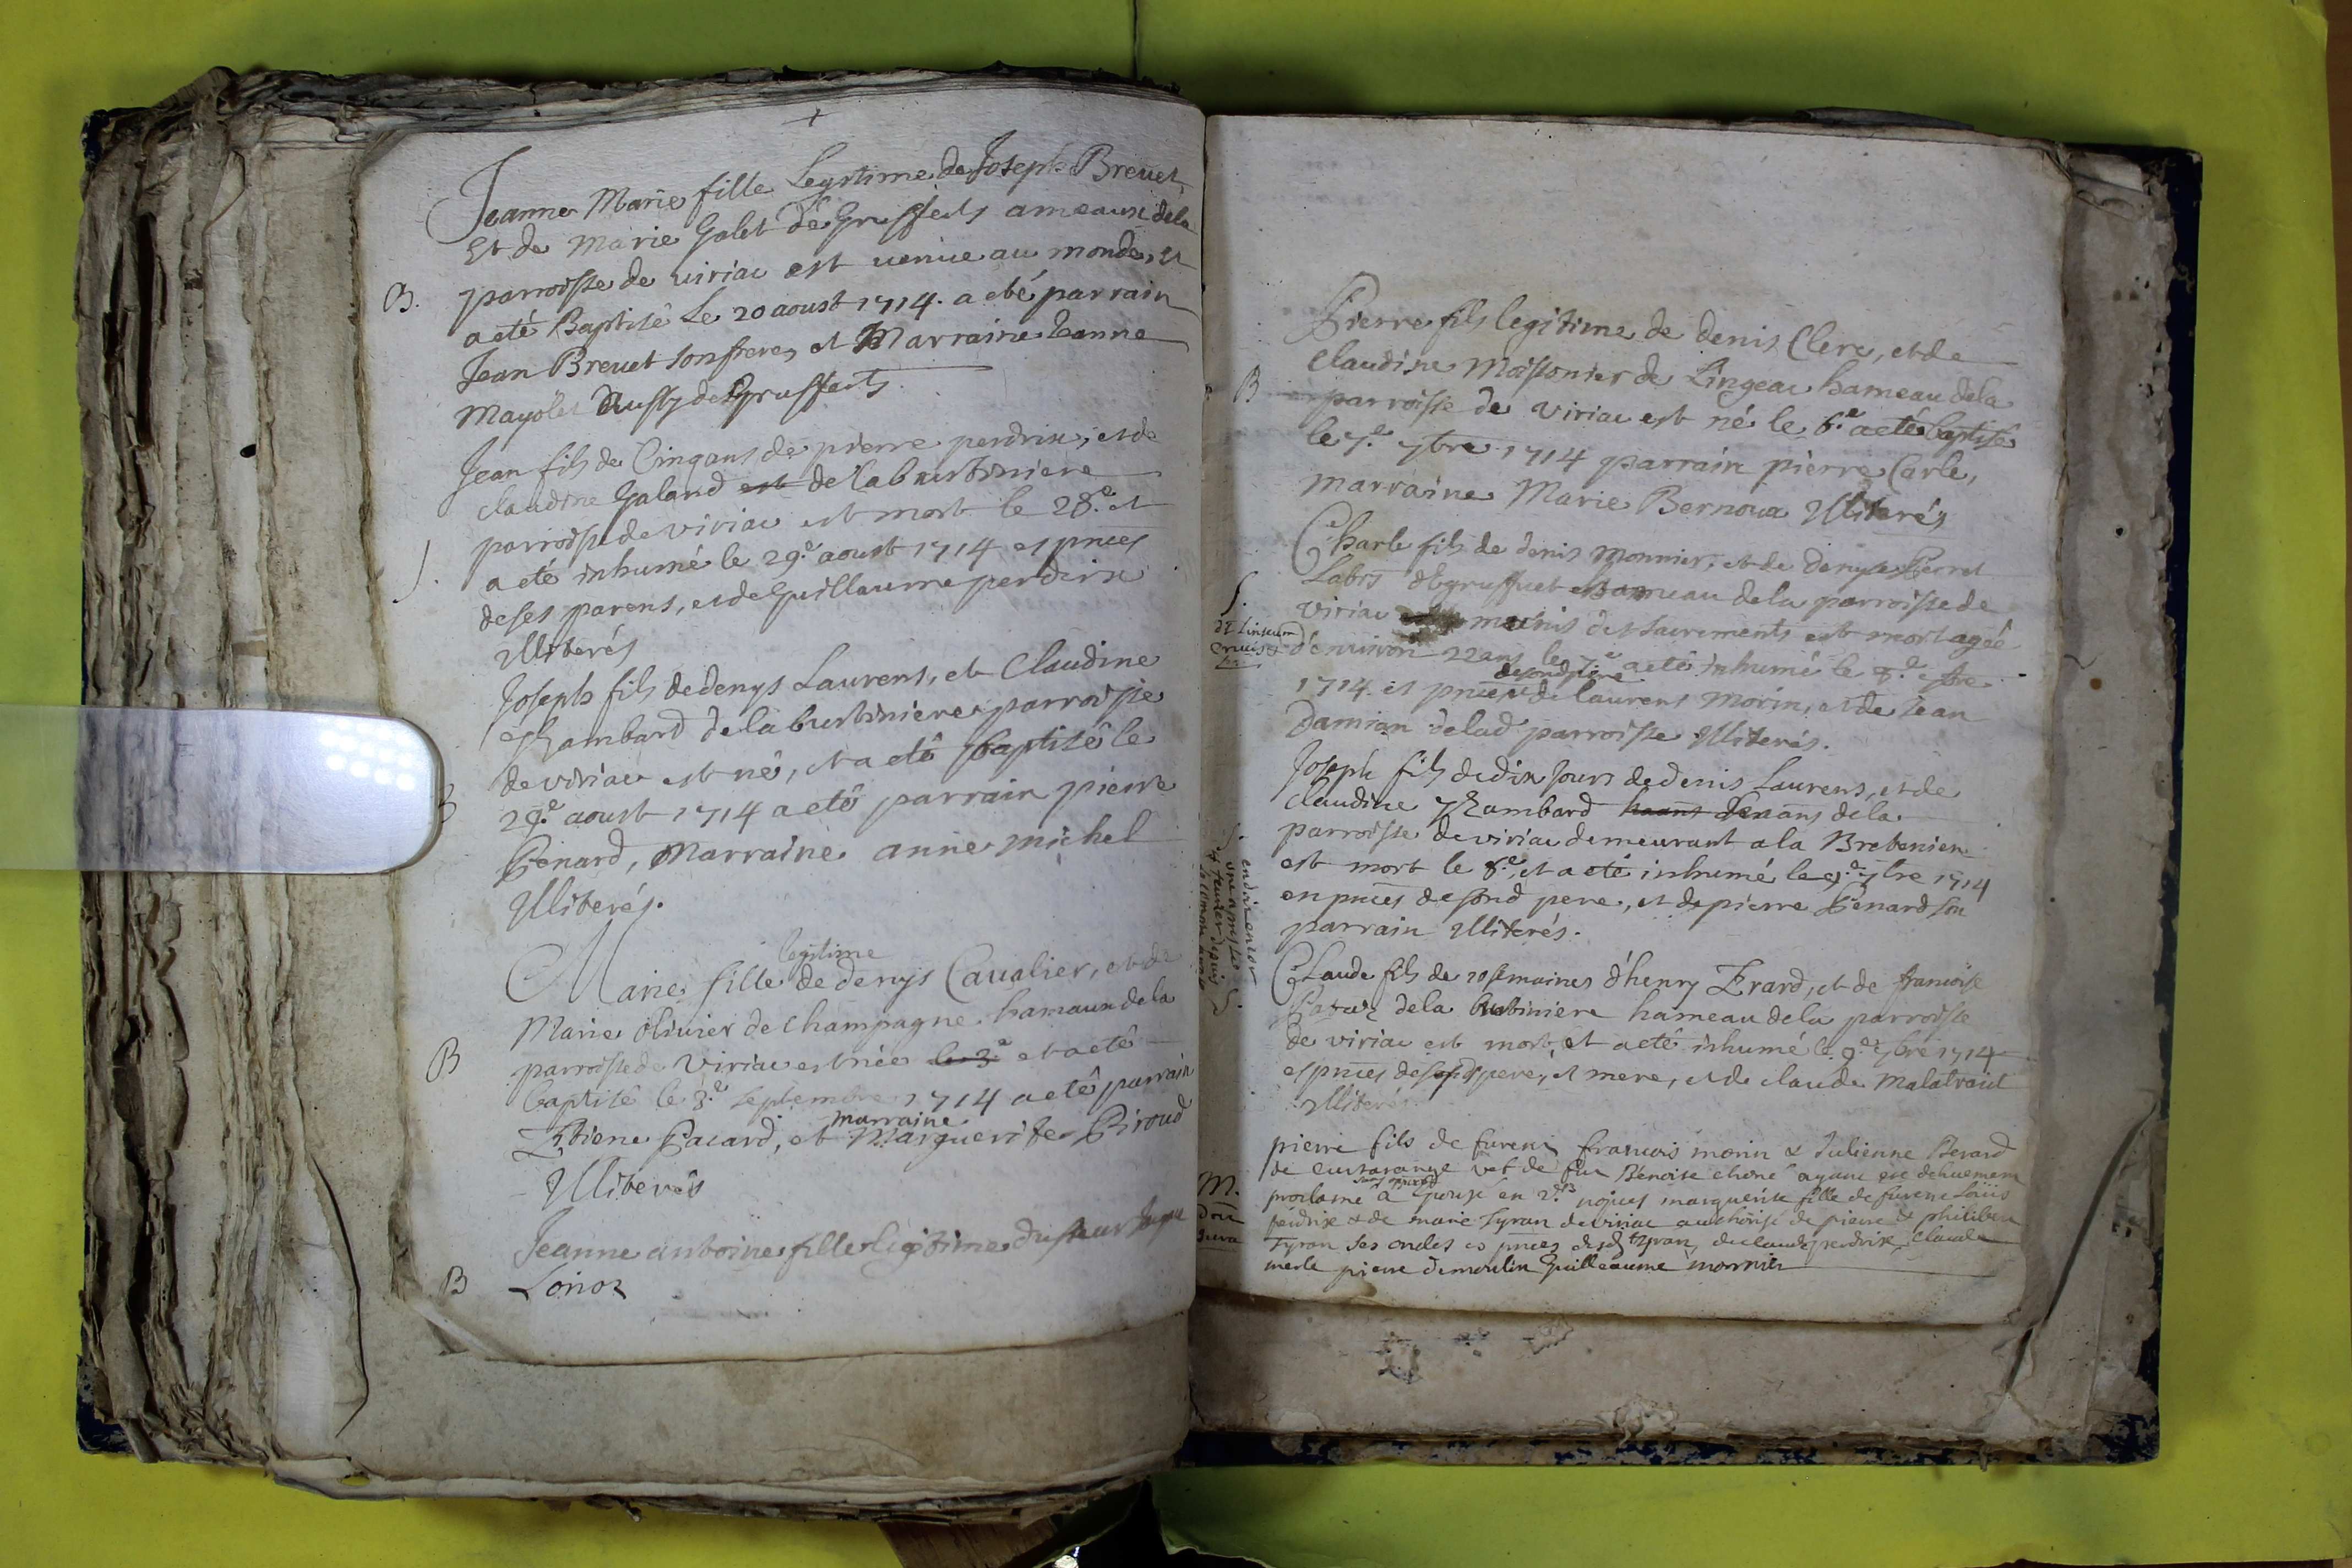 Jeanne Marie fille Legytime de Joseph Brevet,
Et de Marie Galet de Gruffeits ameaux dela
B. parroisse de viriac est venue au monde, et
a eté Baptisé Le 20 aoust 1714. a eté parrain
Jean Brevet son frere, et Marraine Jeanne
Mayolet de Gruffeits.
Jean fils de Cinq ans de pierre perdrix, et de
claudine Galand est de la burbiniere
parroisse de viriac est mort le 28.e et
J. a eté inhumé le 29.e aoust 1714 es pnces
de ses parens, et de Guillaume perdrix
Illiterés
Joseph fils de denys Laurens, et Claudine
Chambard de la burbiniere parroisse
de viriac est né, et a eté baptisé le
29.e aoust 1714 a eté parrain pierre
Genard, Marraine anne michel
Illiterés.
legitime
Marie fille de denys Cavalier, et de
Marie Olivier de champagne hamaux de la
B parroisse de Viriac est née le 3.e et a eté
baptisé le 3.e septembre 1714 a eté parrain
marraine
Etiene Pacard, et Marguerite Giroud
Illiterés
Jeanne antoine fille legitime du sieur
B Lorioz
Pierre fils legitime de denis Clerc, et de
claudine Moissonier de Lingeac hameau dela
B parroisse de viriac est né le 6.e a eté baptisé
le 7.e 7bre 1714 parrain pierre Carle,
marraine Marie Bernoux Illiterés
Charle fils de denis monnier, et de denyse Perret
Labis de gruffuet hameau dela parroisse de
S. viriac munis des sacrements est mort ageé
d'environ 22 ans le 7.e a eté inhumé le 8.e 7bre
de sond pere
1714 es pnces de laurens Morin, et de Jean
Damian de lad parroisse Illiterés.
Joseph fils de dix jours de denis Laurens, et de
claudine Chambard dela
parroisse de viriac demeurant a la Brebenier
est mort le 8.e, et a eté inhumé le 9.e 7bre 1714
en pnces de sond pere, et de pierre Genard son
parrain Illiterés.
Claude fils de 10 semaines d'henry Erard, et de francoise
dela burbiniere hameau dela parroisse
de viriac est mort, et a eté inhumé le 9.e 7bre 1714
es pnces de sesd pere, et mere, et de claude Malatrait
Illiterés
pierre fils de furent francois morin & Julienne Berard
de vef de fue Benoite ayant eté dehuement
proclamé a Epousé en 2.des nopces marguerite fille de furent Loüis
M. perdrix & de marie Tyran de viriac authorisé de pierre & philibert
Tyran ses oncles es pnces desd tyran, de claude perdrix, Claude
merle pierre demoulin Guilleaume monnier